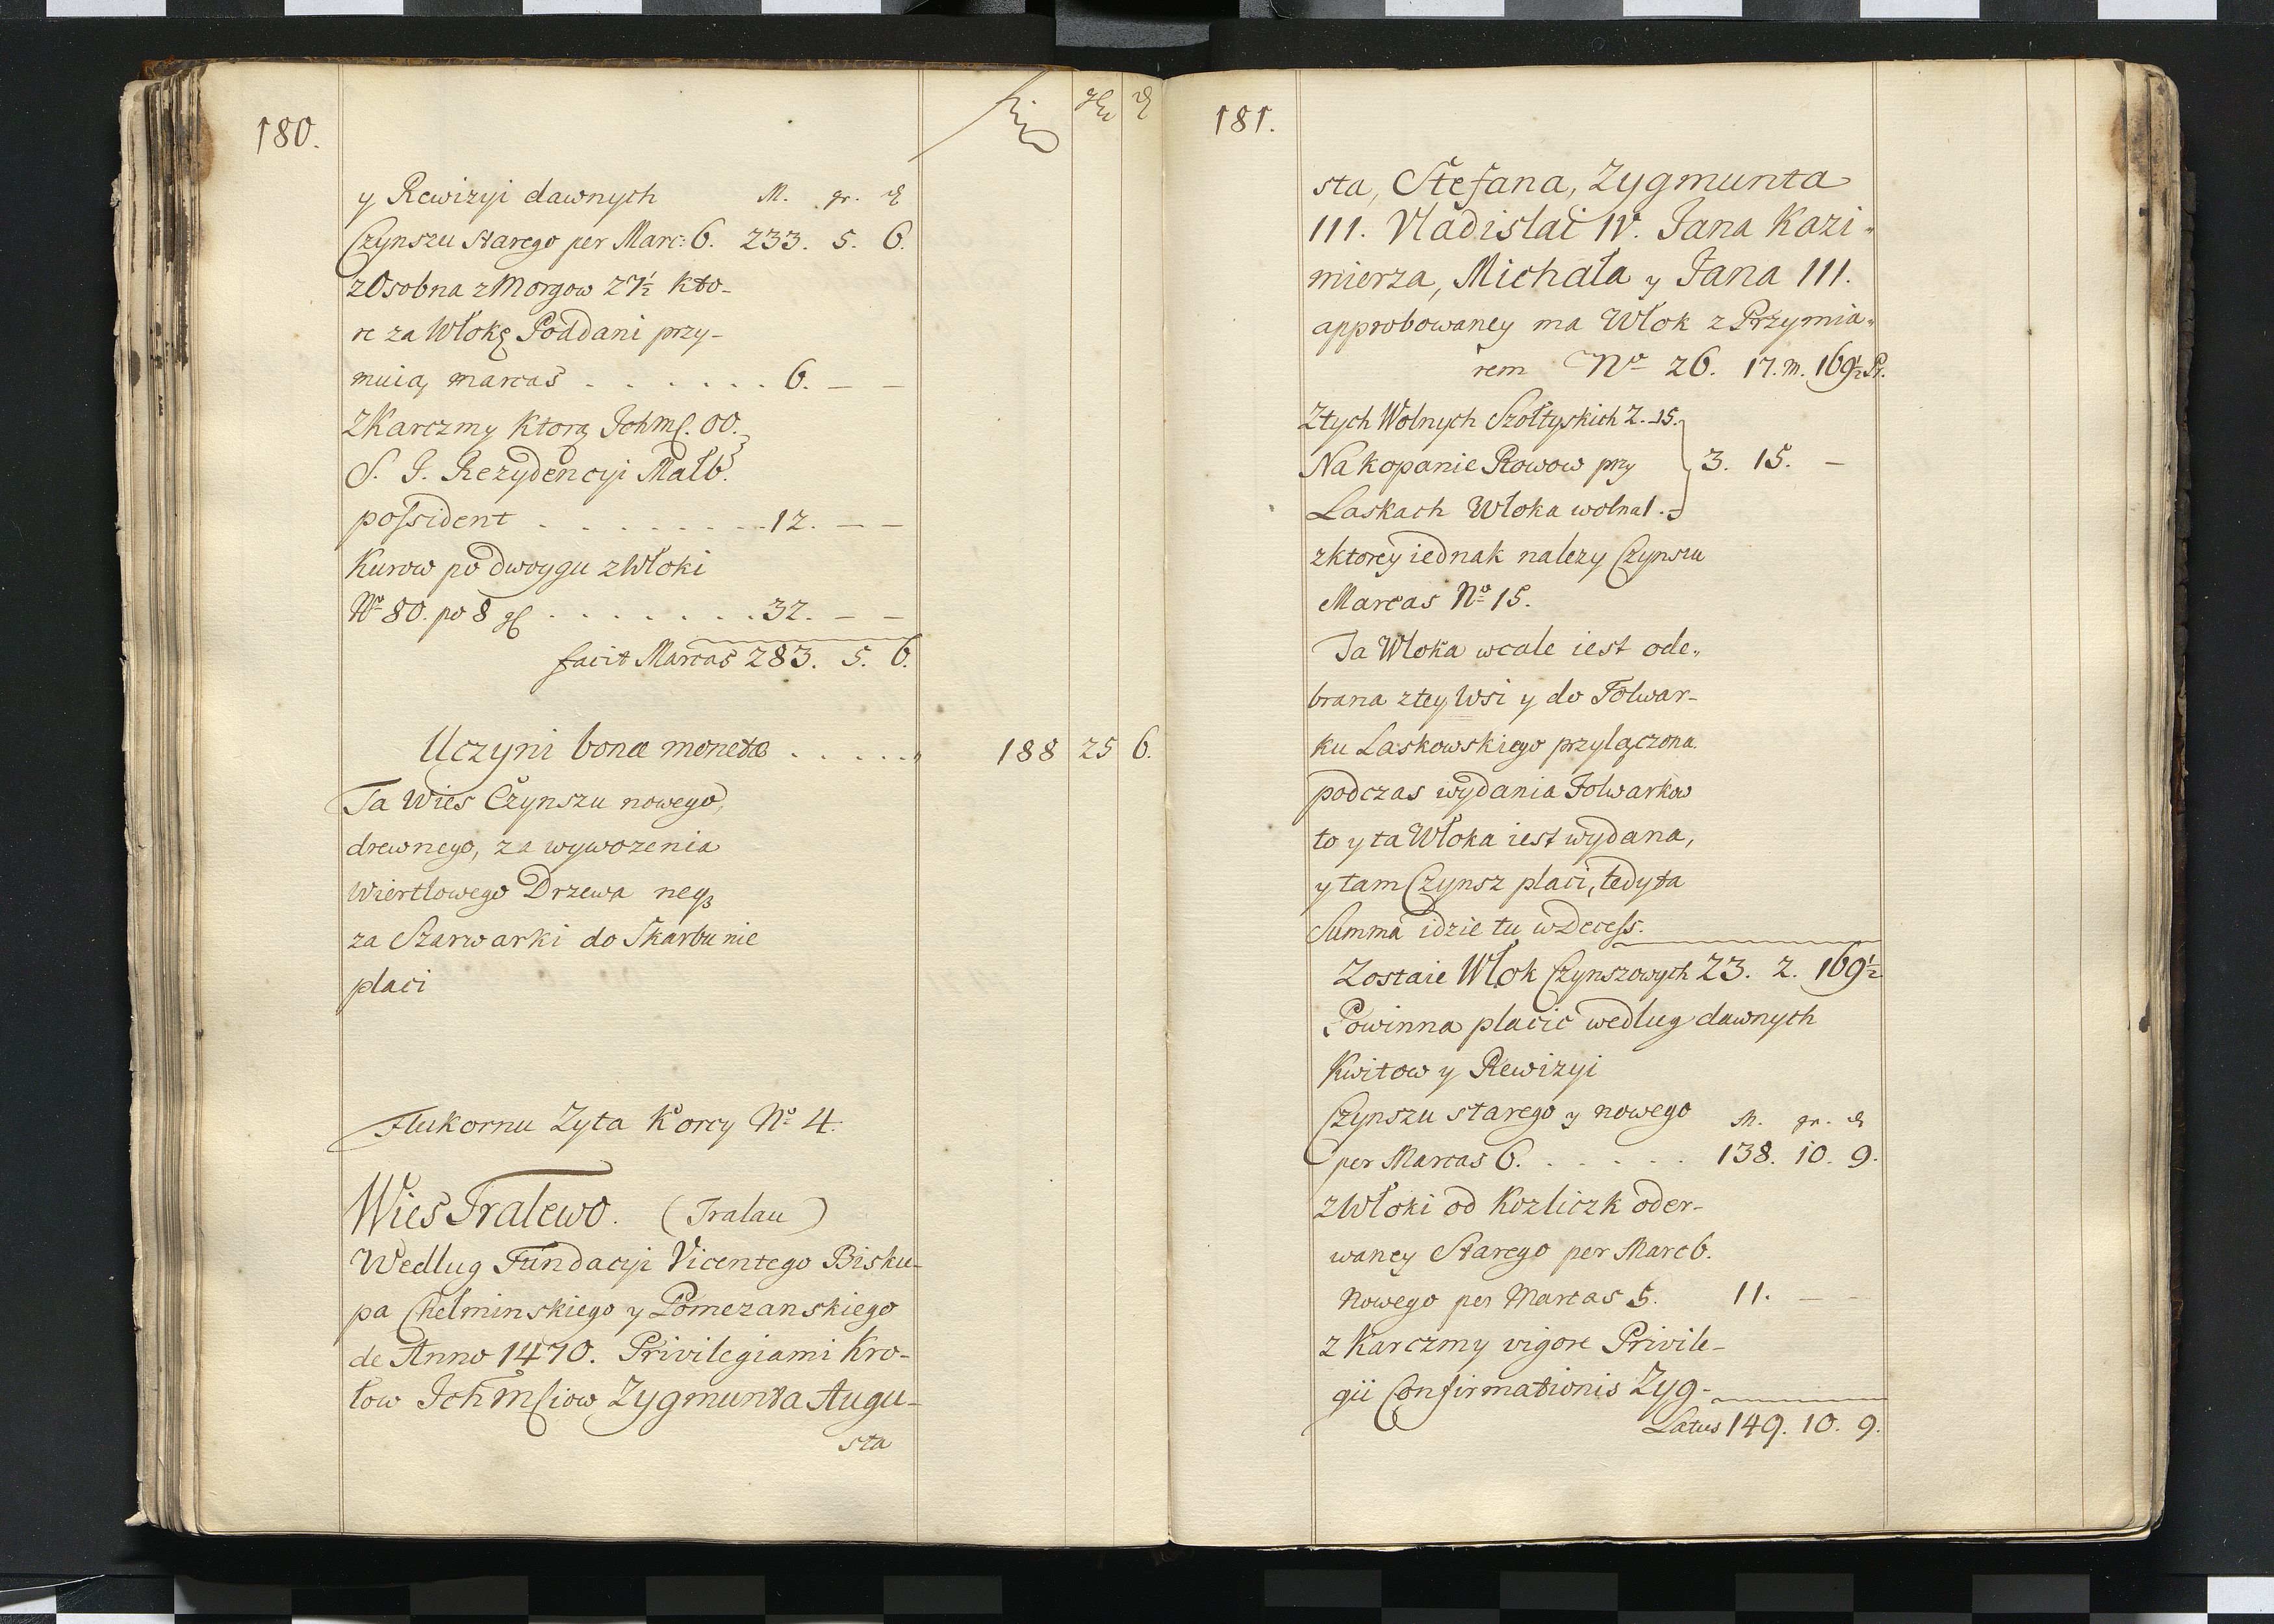 180.
y Rewizyi dawnych M. gr. ₰
Czynszu Starego per Marc: 6. 233. 5. 6.
zOsobna z Morgow 27½ kto-
re za Włokę Poddani przy-
muią marcas . . . . . . . 6. — —
Z Karczmy Ktorą Ichmſ. OO.
S. J. Rezydencyi Malb.
poſsident . . . . . . . . . 12. — —
Kurow po dwoygu z Włoki
No 80. po 8 gſ . . . . . . . . 32. — —
facit Marcas 283. 5. 6.
Uczyni bonæ monetæ . . . . . 188 25 6.
Ta Wies Czynszu nowego,
drewnego, za wywozenia
Wiertlowego Drzewa neqȝ
za Szarwarki do Skarbu nie
placi
Flukornu Zyta Korcy No 4.
Wies Tralewo. (Tralau)
Wedlug Fundacyi Vicentego Bisku-
pa Chelminskiego y Pomezanskiego
de Anno 1470. Privilegiami Kro-
low IchMſciow Zygmunta Augu-
sta
181.
sta, Stefana, Zygmunta
III. Vladislai IV. Jana Kazi„
mierza, Michała y Jana III.
approbowaney ma Włok z Przymia„
rem No 26. 17. m. 169½ Pr.
Z tych Wolnych Szołtyskich 2. 15.
Na kopanie Rowow przy 3. 15. —
Laskach Włoka wolna 1.
z ktorey iednak nalezy Czynszu
Marcas No 15.
Ta Wloka wcale iest ode„
brana z tey Wsi y do Folwar-
ku Laskowskiego przyłączona.
podczas wydania Folwarkow
to y ta Włoka iest wydana,
y tam Czynsz placi, tedy ta
Summa idzie tu w Deceſs.
Zostaie Włok Czynszowych 23. 2. 169½
Powinna placic wedlug dawnych
Kwitow y Rewizyi
Czynszu starego y nowego M. gr. ₰
per Marcas 6. . . . . . 138. 10. 9.
z Włoki od Kozliczk oder-
waney Starego per Marc 6.
Nowego per Marcas 5. 11. — —
z Karczmy vigore Privile-
gii Confirmationis Zyg-
Latus 149. 10. 9.